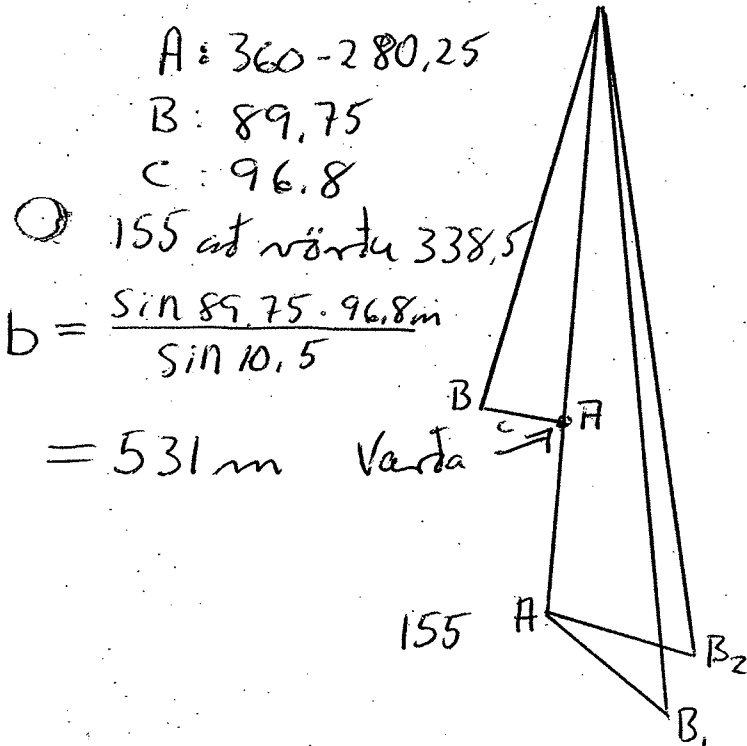 A: 360-280,25
B: 89,75
C: 96.8
155 at vörðu 338,5
b = sin 89.75 · 96,8m / sin 10,5
= 531 m
Varða
B
c
A
155
A
B2
B1